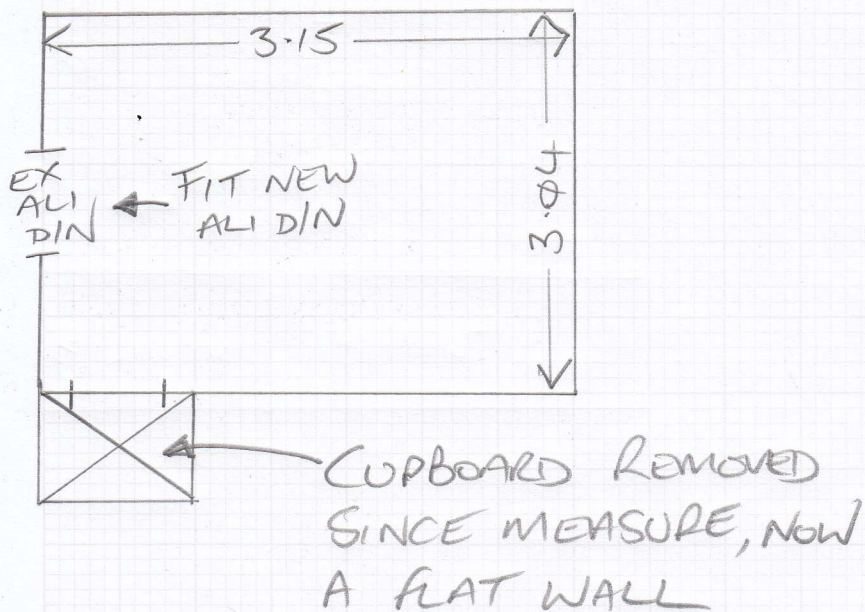 3.15
3.04
EX
ALI
D/N
FIT NEW
ALI D/N
CUPBOARD REMOVED
SINCE MEASURE, NOW
A FLAT WALL